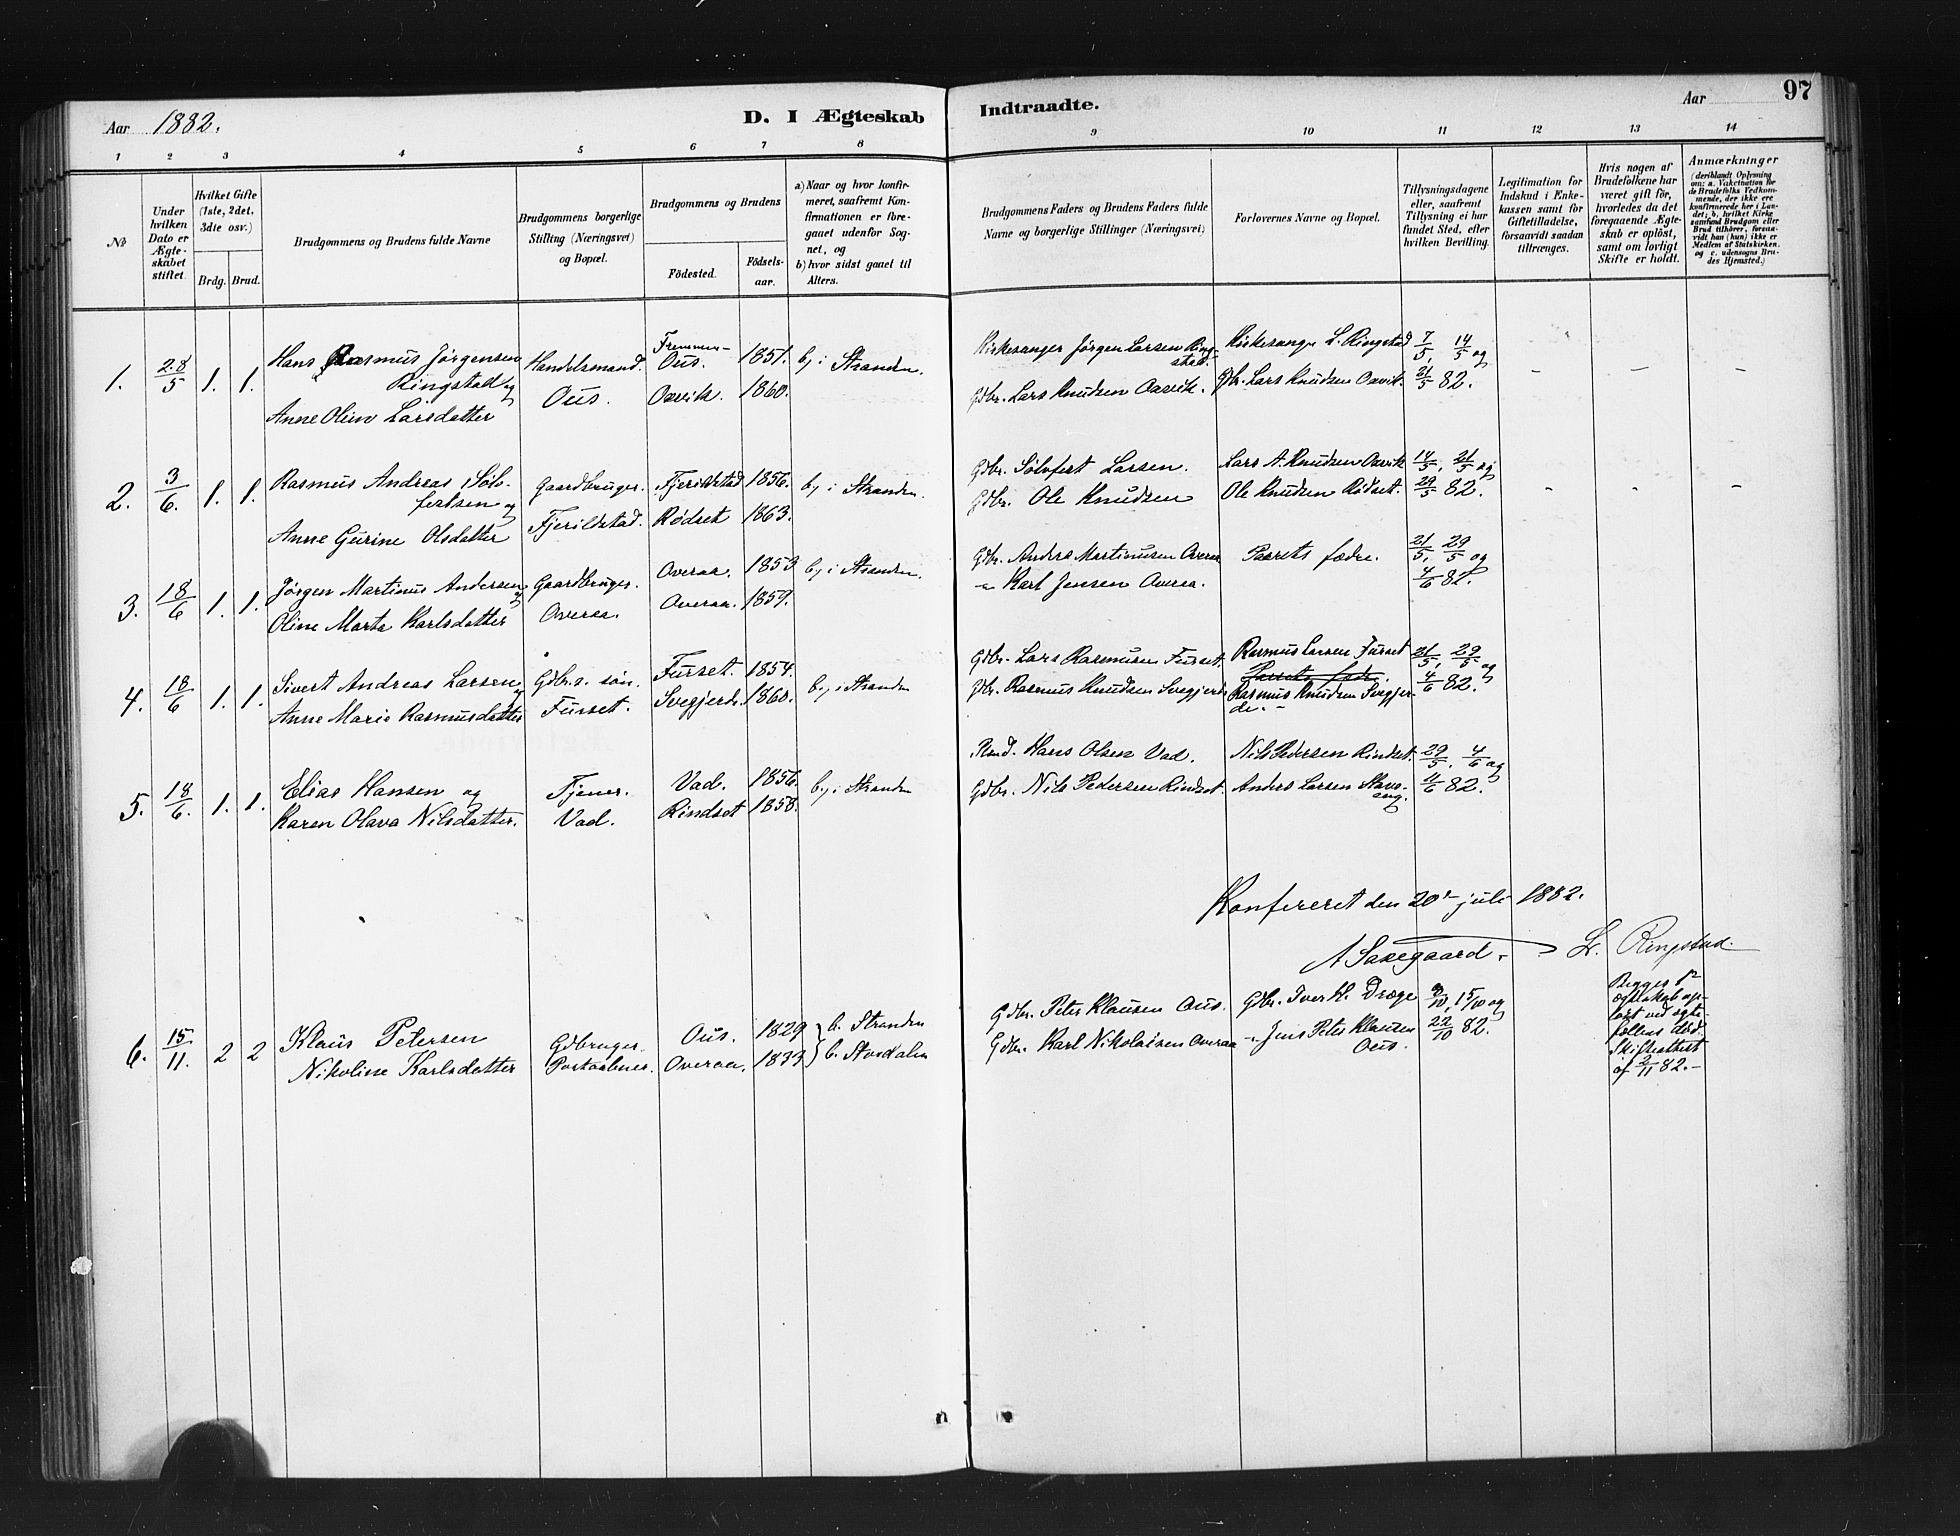 Aar 1882.
D. I Ægteskab Indtraadte.
Aar
97
1 2 3 4 5 6 7 8 9 10 11 12 13 14
No
Under hvilken Dato er Ægteskabet stiftet.
Hvilket Gifte (1ste, 2det, 3die osv.)
Brdg. Brud.
Brudgommens og Brudens fulde Navne
Brudgommens borgerlige Stilling (Næringsvei) og Bopæl.
Brudgommens og Brudens
Födested.
Födsels-aar.
a) Naar og hvor konfirmeret, saafremt Konfirmationen er foregaaet udenfor Sognet, og
b) hvor sidst gaaet til Alters.
Brudgommens Faders og Brudens Faders fulde Navne og borgerlige Stillinger (Næringsvei)
Forlovernes Navne og Bopæl.
Tillysningsdagene eller, saafremt Tillysning ei har fundet Sted, efter hvilken Bevilling.
Legitimation for Indskud i Enkekassen samt for Giftetilladelse, forsaavidt saadan tiltrænges.
Hvis nogen af Brudefolkene har været gift för, hvorledes da det foregaaende Ægteskab er oplöst, samt om lovligt Skifte er holdt.
Anmærkninger
(deriblandt Oplysning om: a. Vakcination for de Brudefolks Vedkommende, der ikke ere konfirmerede her i Landet; b. hvilket Kirkesamfund Brudgom eller Brud tilhörer, forsaavidt han (hun) ikke er Medlem af Statskirken. og c. udensogns Brudes Hjemsted.)
1. 28/5 1. 1. Hans Rasmus Jørgensen Ringstad og Handelsmand. Ous. Fremmer- Ous. 1851. b, i Stranden. Kirkesanger Jörgen Larsen Ringstad. Kirkesanger L. Ringstad 7/5, 14/5 og - - -
Anne Olivn Larsdatter Oavik. 1860. Gdbr. Lars Knudsen Oavik. Gbr. Lars Knudsen Oavik. 21/5 82.
2. 3/6. 1. 1. Rasmus Andreas Sølfestsen og Gaardbruger. Fjerildstad 1856. b, i Stranden. Gdbr. Sölvfert Larsen. Lars A. Knudsen Oavik 14/5, 21/5 og - - -
Anne Gurine Olsdatter Fjerildstad. Rødset 1863. Gdbr. Ole Knudsen Ole Knudsen Rødset. 29/5 82.
3. 18/6 1. 1. Jørgen Martinus Andersen og Gaardbruger. Overaa. 1853 b, i Stranden. Gdbr. Anders Martinusen Overaa Parrets fædre. 21/5, 29/5 og
Oline Marta Karlsdatter Overaa. Overaa. 1859. - Karl Jensen Overaa. 4/6 82.
4. 18/6 1. 1. Sivert Andreas Larsen og Gdbr.s. søn. Furset. 1854. b, i Stranden Gdbr. Lars Rasmusen Furset. Rasmus Larsen Furset 21/5, 29/5 og
Parrets fædre.
Anne Marie Rasmusdatter Furset. Svegjerde. 1860. Gbr. Rasmus Knudsen Svegjerde Rasmus Knudsen Svegjerde. - 4/6 82.
5. 18/6. 1. 1. Elias Hansen og Tjener. Vad. 1856. b, i Stranden Hans Olsen Vad. Nils Pedersen Rindset. 29/5. 4/6 og
Karen Olava Nilsdatter. Vad. Rindset 1858. Gdbr. Nils Pedersen Rindset. Anders Larsen 4/6 82.
Konfereret den 20de juli 1882.
A Saxegaard. L. Ringstad.
6. 15/11. 2 2 Klaus Petersen Gdbruger. Ous. 1829 b. Stranden Gdbr. Peter Klausen Ous. Gdbr. Iver Kl. Dræge 8/10, 15/10 og
Nikoline Karlsdatter Postaabner. Overaa. 1833 b. Stordalen Gdbr. Karl Nikolaisen Overaa - Jens Peter Klausen Ous. 22/10 82.
Begges 1ste ægteskab opløst ved ægtefællens død. Skifteattest af 2/11 82. -